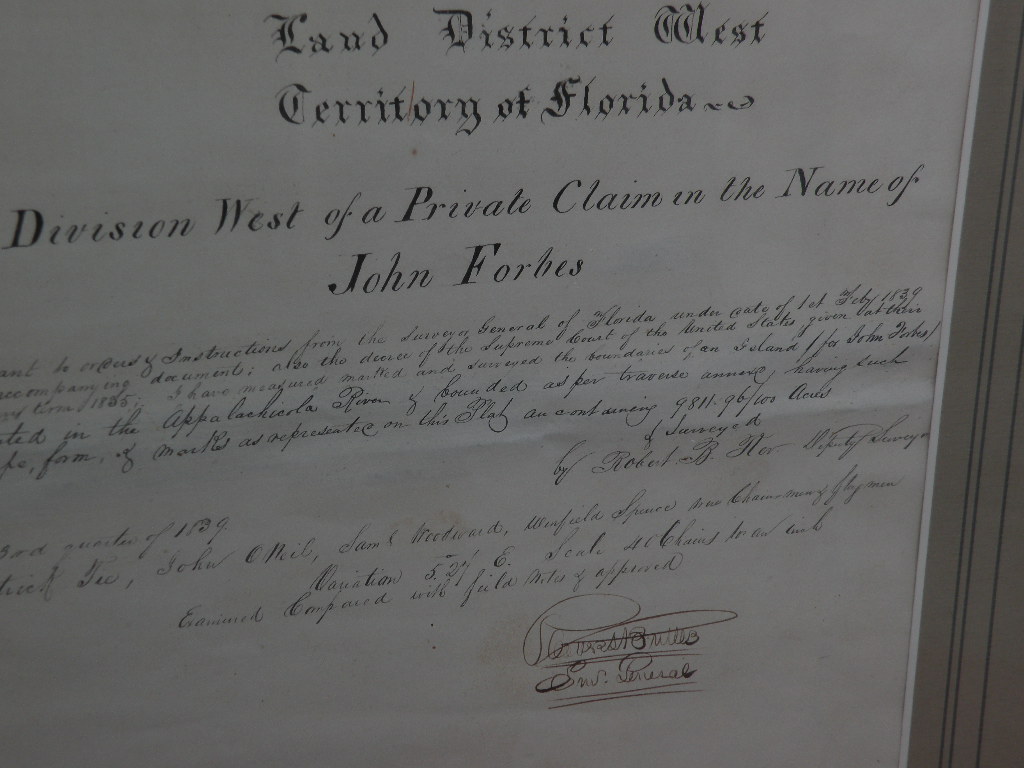 Land District West
Territory of Florida
Division West of a Private Claim in the Name of
John Forbes
Instructions from the Surveyor General of Florida under date of 1st Feby 1839
accompanying documents; also the decree of the Supreme Court of the United States, given at their
term 1835; I have measured marked and surveyed the boundaries of an Island (for John Forbes)
in the Appalachicola River & bounded as per traverse annexed, having such
form, & marks as represented on this Plat containing 9811.96/100 Acres
Surveyed
by Robert B Ker Deputy Surveyor
3rd quarter of 1839
John ONeil, Saml Woodward, Winfield Spence were Chainmen & flagmen
Variation 5.27 E. Scale 40 Chains to an inch
Examined Compared with field notes & approved
Surv. General